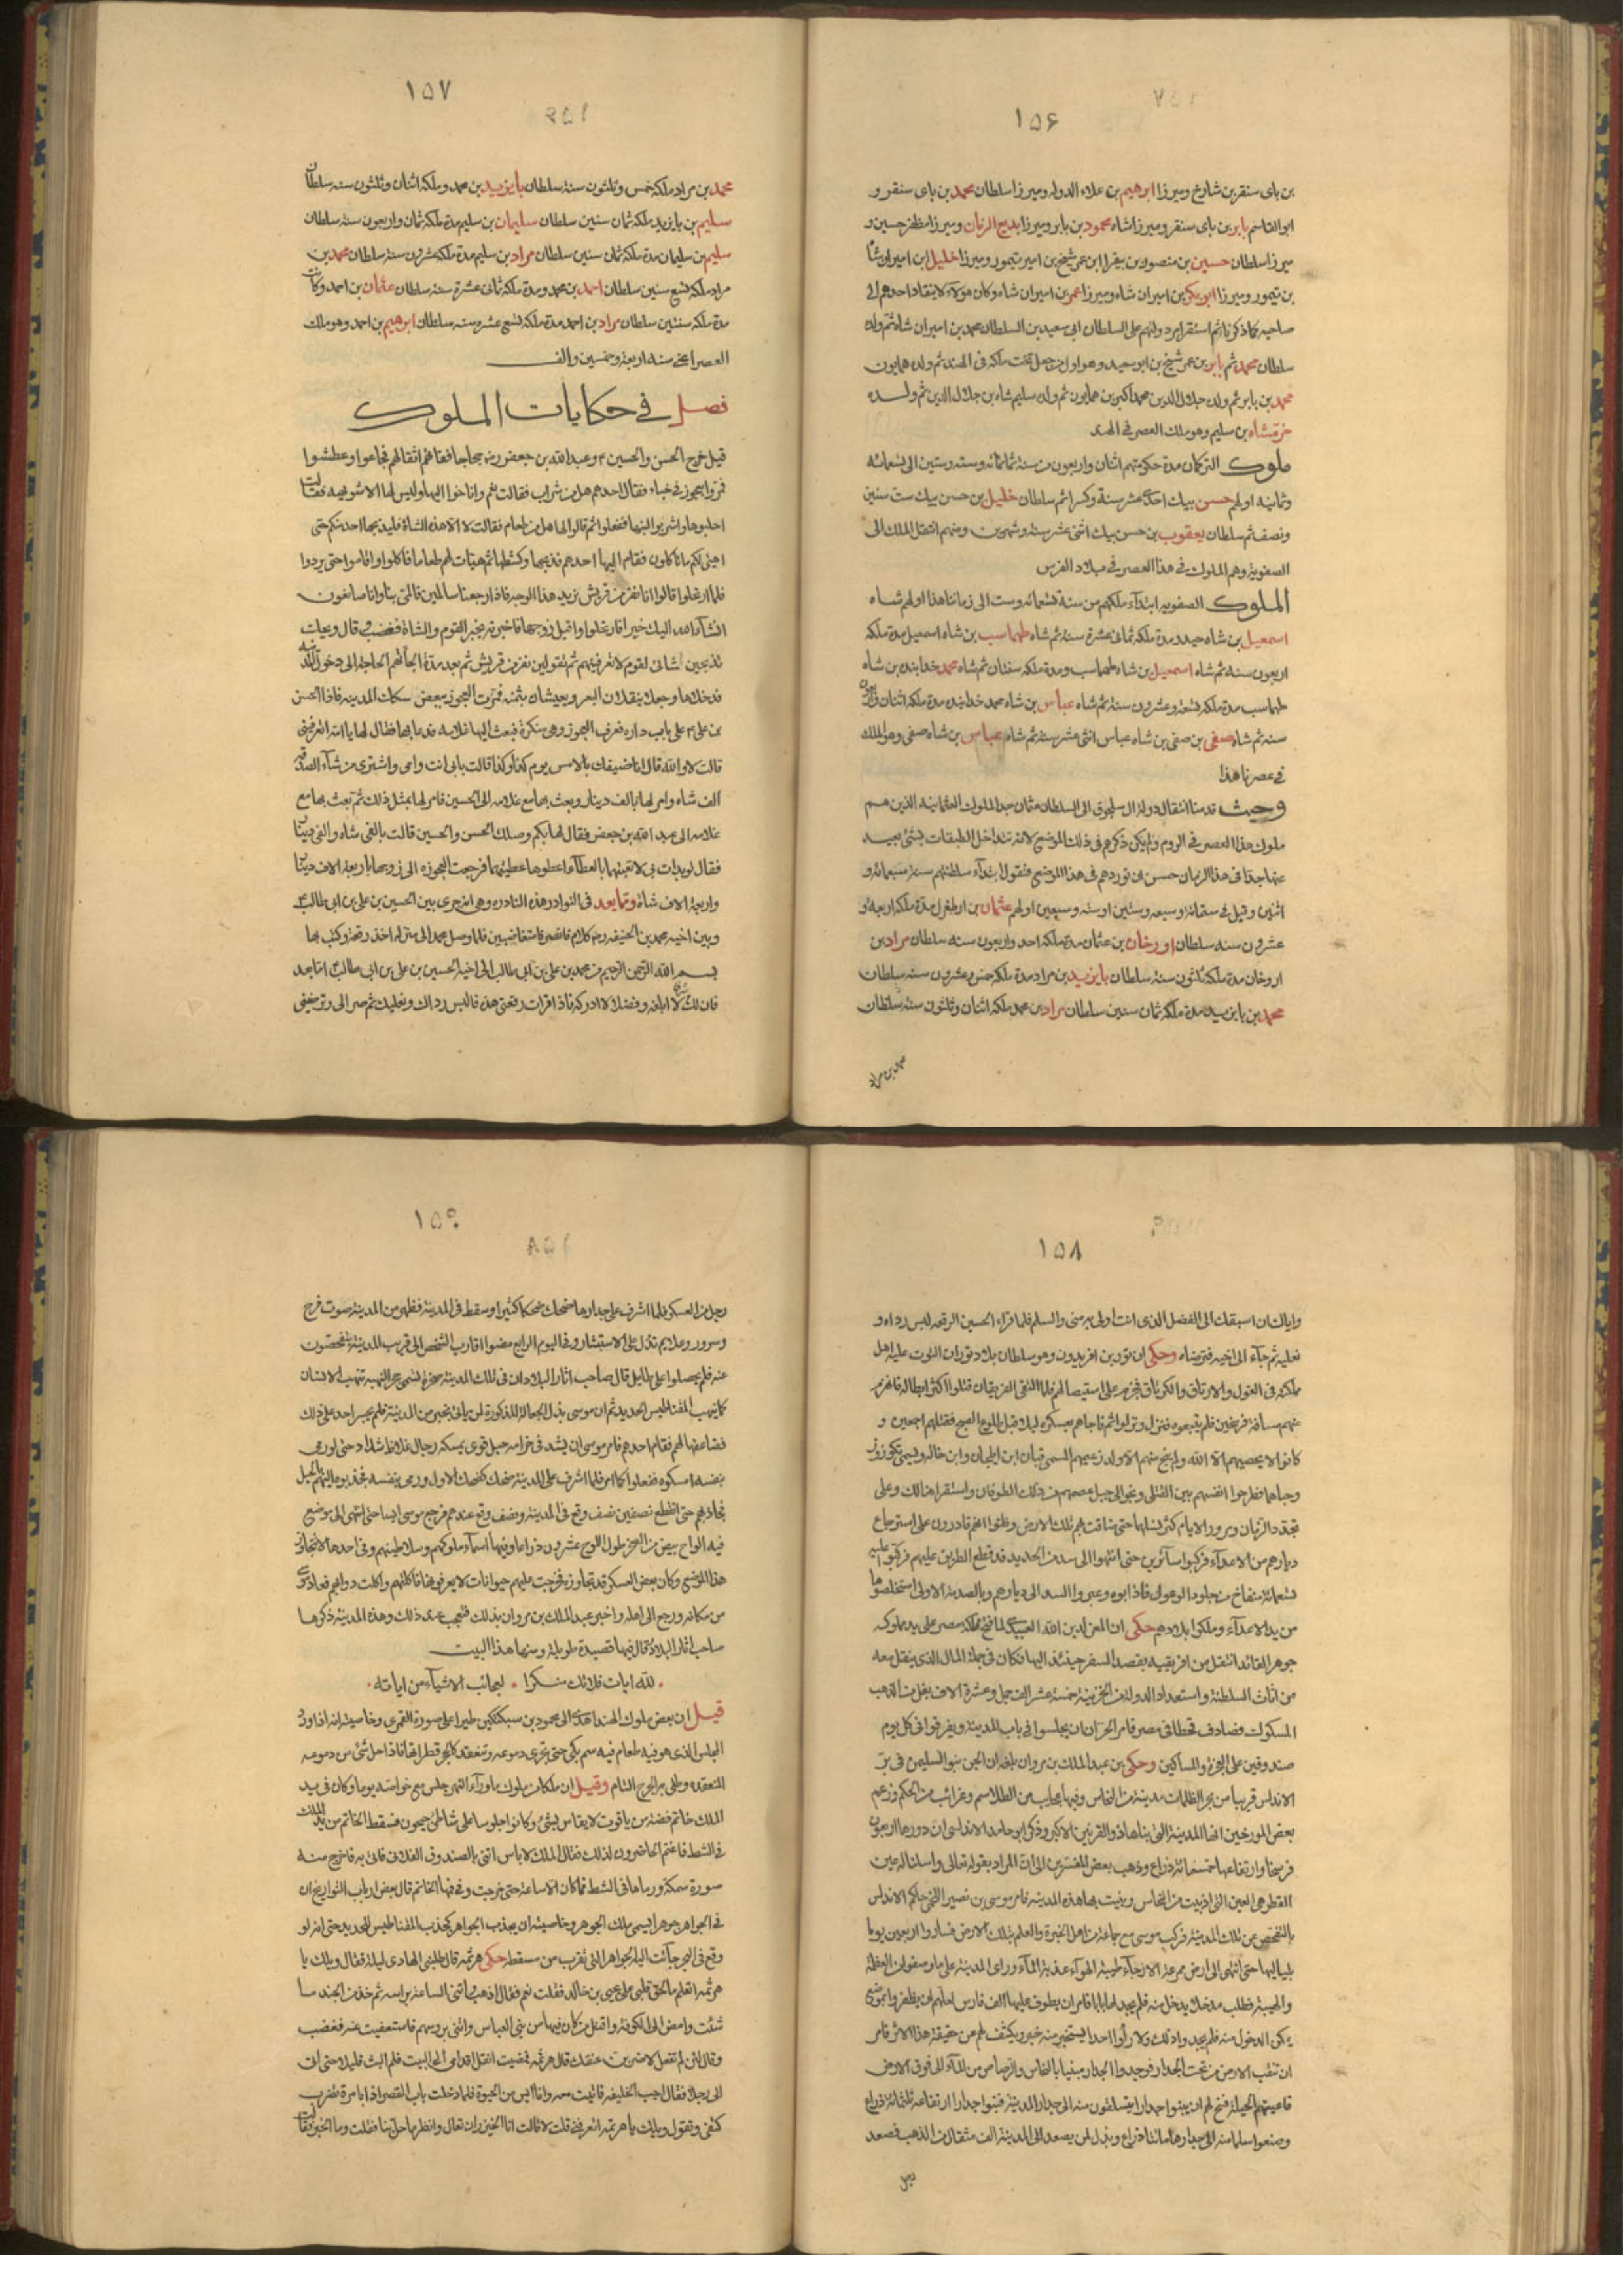 ١٥٦
بن باى سنقر بن شارخ وميرزا ابرهيم بن علاء الدوله وميرزا سلطان محمد بن باى سنقر و
ابو القاسم بابر بن باى سنقر وميرزا شاه محمود بن بابر وميرزا بديع الزمان وميرزا مظفر حسين و
ميرزا سلطان حسين بن منصور بن بيقرا ابن عمر شيخ بن امير تيمور وميرزا خليل ابن اميران شاه
بن تيمور وميرزا ابو بكر بن اميران شاه وميرزا عمر بن اميران شاه وكان هولاء لا ينقاد احدهم الى
صاحبه كما ذكرنا ثم استقر امر دولتهم على السلطان ابى سعيد بن السلطان محمد بن اميران شاه ثم ولده
سلطان محمد ثم بابر بن عمر شيخ بن ابو سعيد وهو اول من جعل تخت ملكه فى الهند ثم ولده همايون
محمد بن بابر ثم ولده جلال الدين محمد اكبر بن همايون ثم ولده سليم شاه بن جلال الدين ثم ولده
خرمشاه بن سليم وهو ملك العصر فى الهند
ملوك التركمان مدة حكومتهم اثنان واربعون من سنة ثمانمائه وسته وستين الى تسعمائه
وثمانيه اولهم حسن بيك احد عشر سنة وكسر ثم سلطان خليل بن حسن بيك ست سنين
ونصف ثم سلطان يعقوب بن حسن بيك اثنى عشر سنة وشهرين ومنهم انتقل الملك الى
الصفوية وهم الملوك فى هذا العصر فى بلاد الفرس
الملوك الصفويه ابتدآء ملكهم من سنة تسعمائه وست الى زماننا هذا اولهم شاه
اسمعيل بن شاه حيدر مدة ملكه ثمانى عشرة سنة ثم شاه طهماسب بن شاه اسمعيل مدة ملكه
اربعون سنه ثم شاه اسمعيل بن شاه طهماسب ومدة ملكه سنتان ثم شاه محمد خدابنده بن شاه
طهماسب مدة ملكه تسعة وعشرون سنة ثم شاه عباس بن شاه محمد خدابنده مدة ملكه اثنان واربعون
سنه ثم شاه صفى بن صفى بن شاه عباس اثنى عشر سنة ثم شاه عباس بن شاه صفى وهو الملك
فى عصرنا هذا
وحيث قدمنا انتقال دولة ال سلجوق الى السلطان عثمان جد الملوك العثمانيه الذين هم
ملوك هذا العصر فى الروم ولم يكن ذكرهم فى ذلك الموضع لانه تتداخل الطبقات بشئ بعيد
عنها جدا فى هذا الزمان حسن ان نوردهم فى هذا الموضع فنقول ابتدآء سلطنتهم سنة سبعمائه و
اثنين وقيل فى ستمائة وسبعه وستين او سته وسبعين اولهم عثمان بن ارطغرل مدة ملكه اربعه و
عشرون سنه سلطان اورخان بن عثمان مدة ملكه احد واربعون سنه سلطان مراد بن
اروخان مدة ملكه ثلثون سنة سلطان بايزيد بن مراد مدة ملكه خمس وعشرون سنه سلطان
محمد بن بايزيد مدة ملكه ثمان سنين سلطان مراد بن محمد ملكه اثنان وثلثون سنة سلطان
محمد بن مراد
١٥٧
محمد بن مراد ملكه خمس وثلثون سنة سلطان بايزيد بن محمد وملكه اثنان وثلثون سنه سلطان
سليم بن بايزيد ملكه ثمان سنين سلطان سليمان بن سليم مدة ملكه ثمان واربعون سنة سلطان
سليم بن سليمان مدة ملكه ثمان سنين سلطان مراد بن سليم مدة ملكه عشرون سنة سلطان محمد بن
مراد ملكه تسع سنين سلطان احمد بن محمد ومدة ملكه ثمانى عشرة سنه سلطان عثمان بن احمد وكانت
مدة ملكه سنتين سلطان مراد بن احمد مدة ملكه تسع عشر سنه سلطان ابرهيم بن احمد وهو ملك
العصر اعنى سنه اربعة وخمسين والف
فصل فى حكايات الملوك
قيل خرج الحسن والحسين ع وعبد الله بن جعفر رضه حجاجا ففاتهم اثقالهم فجاعوا وعطشوا
فمروا بعجوز فى خباء فقال احدهم هل من شراب فقالت نعم واناخوا اليها وليس لها الا شويهه فقالت
احلبوها واشربوا لبنها ففعلوا ثم قالوا لها هل من طعام فقالت لا الا هذه الشاة فليذبحها احدكم حتى
اهيئ لكم ما تاكلون فقام اليها احدهم فذبحها وكشطها ثم هيات لهم طعاما فاكلوا واقاموا حتى بردوا
فلما ارتحلوا قالوا انا نفر من قريش نريد هذا الوجه فاذا رجعنا سالمين فالمى بنا وانا صانعون
انشآء الله اليك خيرا فارتحلوا واقبل زوجها فاخبرته بخبر القوم والشاة فغضب وقال ويحك
تذبحين شاتى لقوم لا تعرفينهم ثم تقولين نفر من قريش ثم بعد مدة الجأتهم الحاجة الى دخول المدينه
فدخلاها وجعلا ينقلان البعر ويعيشان بثمنه فمرت العجوز ببعض سكك المدينه فاذا الحسن
بن على ع على باب داره فعرف العجوز وهى منكرة فبعث اليها غلامه فدعا بها فقال لها يا امة الله اتعرفينى
قالت لا والله قال انا ضيفك بالامس يوم كذا وكذا قالت بابى انت وامى واشترى من شآء الصدقه
الف شاه وامر لها بالف دينار وبعث بها مع غلامه الى الحسين فامر لها بمثل ذلك ثم بعث بها مع
غلامه الى عبد الله بن جعفر فقال لها بكم وصلك الحسن والحسين قالت بالفى شاه والفى دينار
فقال لو بدات بى لاتعبتهما بالعطآء اعطوها عطيتهما فرجعت العجوزه الى زوجها باربعة الاف دينار
واربعة الاف شاة ومما يعد فى النوادر هذه النادره وهى انه جرى بين الحسين بن على بن ابى طالب ع
وبين اخيه محمد بن الحنيفه رضه كلام فانصرفا متغاضبين فلما وصل محمد الى منزله اخذ رقعة وكتب بها
بسم الله الرحمن الرحيم من محمد بن على بن ابى طالب الى اخيه الحسين بن على بن ابى طالب اما بعد
فان لك شرفا لا ابلغه وفضلا لا ادركه فاذا قرات رقعتى هذه فالبس رداك ونعليك ثم صر الى وترضينى
١٥٨
واياك ان اسبقك الى الفضل الذى انت اولى به منى والسلم فلما قراء الحسين الرقعه لبس رداه و
نعليه ثم جآء الى اخيه فترضاه وحكى ان تور بن افريدون وهو سلطان بلاد توران التوت عليه اهل
ملكته فى الغول والارتاق والكرناق فخرم على استيصالهم فلما التقى الفريقان قتلوا اكثر ابطاله فانهزم
عنهم مسافة فرسخين فلم يتبعوه فنزل ونزلوا ثم فاجاهم بعسكره ليلا وقبل طلوع الصبح فقتلهم اجمعين و
كانوا لا يحصيهم الا الله ولم ينج منهم الا ولد زعيمهم المسمى قيان ابن ايلخان وابن خاله ويسمى تكوز
وجباها فطرحوا انفسهم بين القتلى ونجوا الى جبل عصمهم من ذلك الطوفان واستقرا هنالك وعلى
تجدد الزمان ومرور الايام كثر نسلهما حتى ضاقت بهم تلك الارض وظنوا انهم قادرون على استرجاع
ديارهم من الاعدآء فركبوا سآئرين حتى انتهوا الى سد من الحديد قد قطع الطريق عليهم فركبوا عليه
تسعمائة منفاخ من جلود الوعول فاذابوه وعبروا السد الى ديارهم وبالصدمة الاولى استخلصوها
من يد الاعدآء وملكوا بلادهم حكى ان المعز لدين الله العبيدى لما فتح مملكة مصر على يد مملوكه
جوهر القائد انتقل من افريقيه بقصد السفر حينئذ اليها فكان فى جملة المال الذى ينقل معه
من اثاث السلطنة واستعداد الدولة من الخزينة خمسة عشر الف جمل وعشرة الاف بغل من الذهب
المسكوك فصادف قحطا فى مصر فامر الخزان ان يجلسوا فى باب المدينة ويفرقوا فى كل يوم
صندوقين على العجزة والمساكين وحكى بن عبد الملك بن مروان بلغه ان الجن بنوا لسليمن فى بر
الاندلس قريبا من بحر الظلمات مدينة من النحاس وفيها عجايب من الطلاسم وغرائب من الحكم وزعم
بعض المورخين انها المدينة التى بناها ذو القرنين الاكبر وذكر ابو حامد الاندلسى ان دورها اربعون
فرسخا وارتفاعها خمسمائة ذراع وذهب بعض المفسرين الى ان المراد بقوله تعالى واسلنا له عين
القطر هى العين التى اذيبت من النحاس وبنيت بها هذه المدينه فامر موسى بن نصير اللخمى حاكم الاندلس
بالتفحص عن تلك المدينة فركب موسى مع جماعة من اهل الخبرة والعلم بتلك الارض فساروا اربعين يوما
بلياليها حتى انتهى الى ارض ممرعة الارجآء طيبة الهوآء عذبة المآء وراى المدينة على ما وصفوا من العظمة
والهيبة فطلب مدخلا يدخل منه فلم يجد لها بابا فامر ان يطوف عليها الف فارس لعلهم ان يظفروا بموضع
يمكن الدخول منه فلم يجدوا ذلك ولا رأوا احدا يستخبر منه خبرا ويكشف لهم عن حقيقة هذا الامر فامر
ان تنقب الارض من تحت الجدار فوجدوا الجدار مبنيا بالنحاس والرصاص من المآء الى فوق الارض
فاعيتهم الحيلة فنتج لهم ان يبنوا جدارا يتسلقون منه الى جدار المدينة فبنوا جدارا ارتفاعه ثلثمائة ذراع
وصنعوا سلما منه الى جدارها مائتا ذراع وبذل لمن يصعد الى المدينة الف مثقال من الذهب فصعد
رجل
١٥٩
رجل من العسكر فلما اشرف على جدارها ضحك ضحكا كثيرا وسقط فى المدينة فظهر من المدينة صوت فرح
وسرور وعلايم تدل على الاستبشار وفى اليوم الرابع مضوا اقارب الشخص الى قريب المدينة يتفحصون
عنه فلم يحصلوا على طايل قال صاحب اثار البلاد ان فى تلك المدينة صخرة تسمى حجر النهبة تنهب الانسان
كما ينهب المغناطيس الحديد ثم ان موسى بذل الجعالة المذكورة لمن ياتى بخبر من المدينة فلم يجسر احد على ذلك
فضاعفها لهم فقام احدهم فامر موسى ان يشد فى حزامه حبل قوى يمسكه رجال غلاظ شداد حتى لو رمى
بنفسه امسكوه ففعلوا كما امر فلما اشرف على المدينة ضحك كضحك الاول ورمى بنفسه فجذبوه اليهم بالحبل
فجاذبهم حتى انقطع نصفين نصف وقع فى المدينة ونصف وقع عندهم فرجع موسى ايسا حتى انتهى الى موضع
فيه الواح بيض من الصخر طول اللوح عشرون ذراعا وفيها اسمآء ملوكهم وسلاطينهم وفى احدها لا تتجاوز
هذا الموضع وكان بعض العسكر قد تجاوزه فخرجت عليهم حيوانات لا يعرفونها فاكلتهم واكلت دوابهم فعاد موسى
من مكانه ورجع الى اهله واخبر عبد الملك بن مروان بذلك فتعجب عند ذلك وهذه المدينة ذكرها
صاحب اثار البلاد وقال فيها قصيدة طويلة ومنها هذا البيت
لله ايات فلا تك منكرا ۰ لعجائب الاشيآء من اياته
قيل ان بعض ملوك الهند اهدى الى محمود بن سبكتكين طيرا على صورة القمرى وخاصيته انه اذا ورد
المجلس الذى هو فيه طعام فيه سم بكى حتى تجرى دموعه وتنعقد كالحجر قطراتها فاذا حل شئ من دموعه
المنعقده وطلى به الجرح التام وقيل ان ملكا من ملوك ماورآء النهر جلس مع خواصه يوما وكان فى يد
الملك خاتم فضة من ياقوت لا يقاس بشئ وكانوا جلوسا على شاطئ جيحون فسقط الخاتم من يد الملك
فى الشط فاغتم الحاضرون لذلك فقال الملك لا باس ائتنى بالصندوق الفلانى فاتى به فاخرج منه
صورة سمكة ورماها فى الشط فما كان الا ساعة حتى خرجت وفى فمها الخاتم قال بعض ارباب التواريخ ان
فى الجواهر جوهرا يسمى ملك الجوهر وخاصيته ان يجذب الجواهر كجذب المغناطيس للحديد حتى انه لو
وقع فى البحر جآئت اليه الجواهر التى بقرب من مسقطه حكى هرثمه قال طلبنى الهادى ليلة فقال ويلك يا
هرثمه اتعلم ما لحق قلبى على يحيى بن خالد فقلت نعم فقال اذهب وأتنى الساعة براسه ثم خذ من الجند ما
شئت وامض الى الكوفة واقتل من كان فيها من بنى العباس وائتنى بروسهم فاستعفيت عنه فغضب
وقال لئن لم تفعل لاضربن عنقك قال هرثمه فمضيت انقل اقدامى الى البيت فلم البث قليلا حتى اتى
الى رجلا فقال اجب الخليفه فاتيت معه وانا ايس من الحيوة فلما دخلت باب القصر اذا بامرة تضرب
كتفى وتقول ويليك يا هرثمه اتعرفنى قلت لا قالت انا الخيزران تعال وانظر ما حل بنا فقلت وما الخبر فقالت